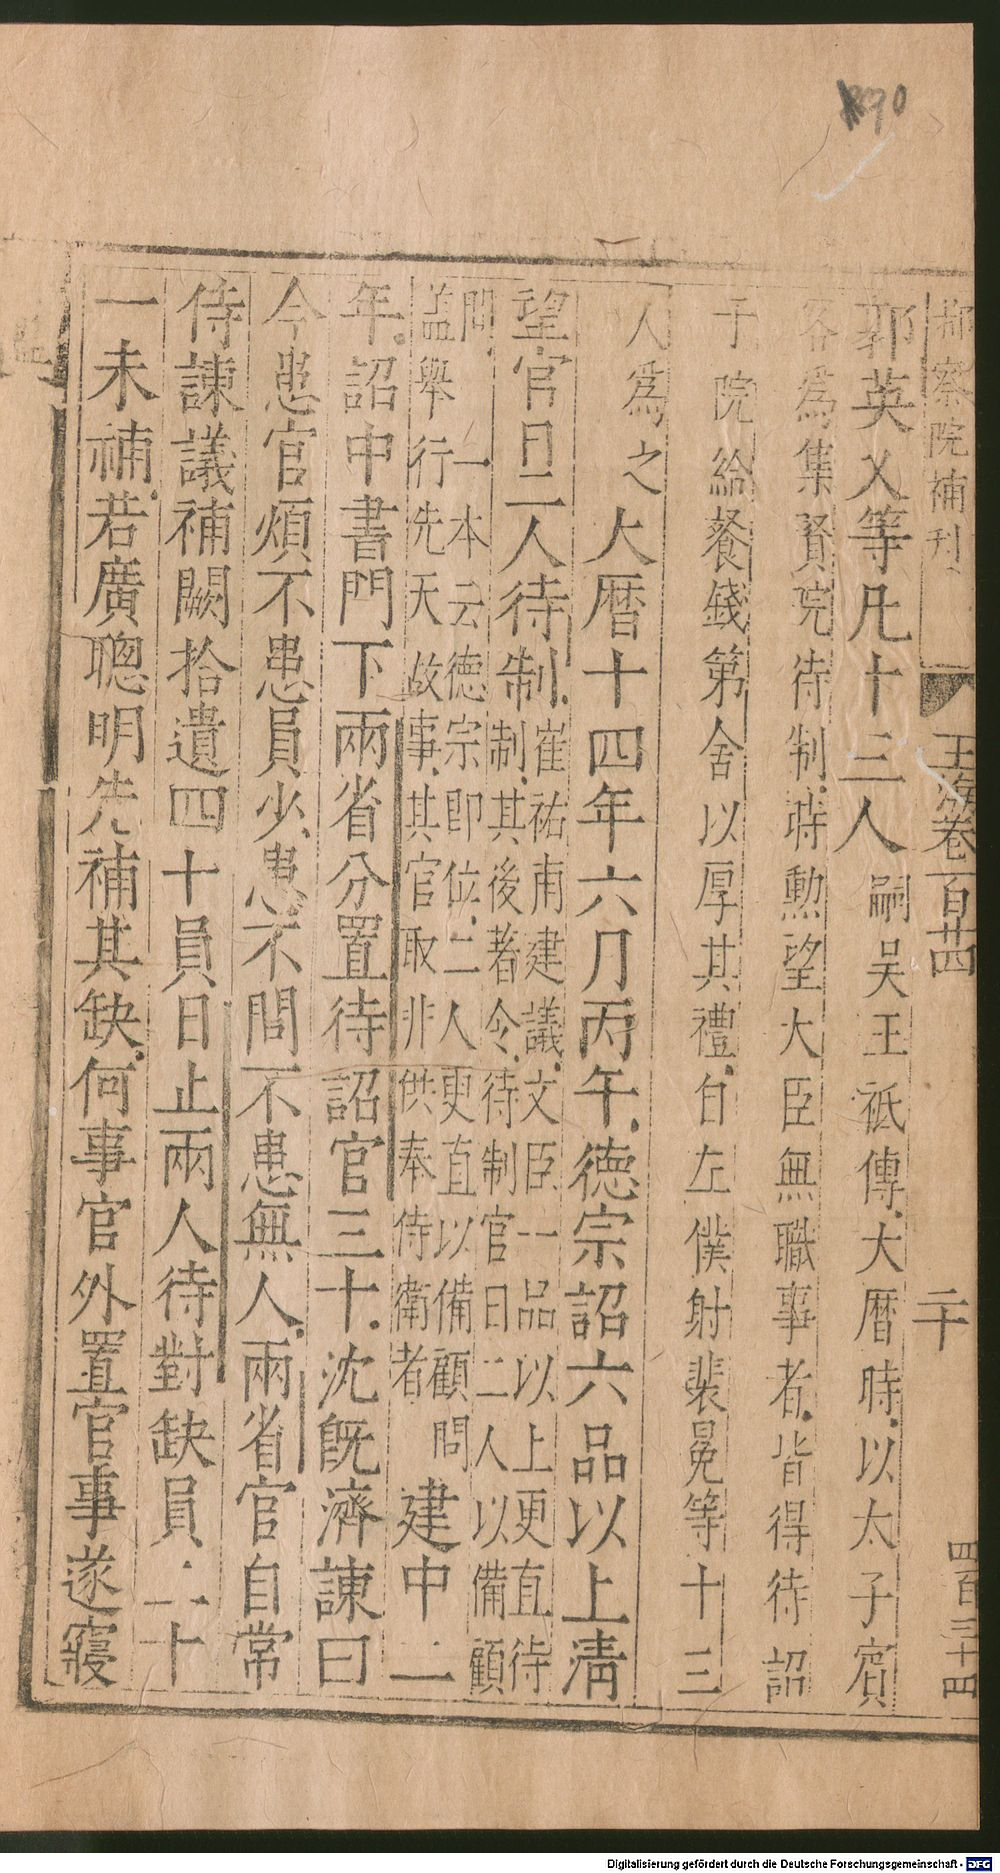 郭英乂等凡十三人嗣吳王祗傳大曆時以太子賓
客爲集賢院待制時勲望大臣無職事者皆得待詔
于院給餐錢第舍以厚其禮自左僕射裴冕等十三
人爲之 大曆十四年六月丙午德宗詔六品以上淸
望官日二人待制崔祐甫建議文臣一品以上更直待
制其後著令待制官日二人以備顧
問 一本云德宗卽位二人更直以備顧問
葢舉行先天故事其官取非供奉侍衛者 建中二
年詔中書門下兩省分置待詔官三十沈旣濟諫曰
今患官煩不患員少患不問不患無人兩省官自常
侍諫議補闕拾遺四十員日止兩人待對缺員二十
一未補若廣聰明先補其缺何事官外置官事遂寢
都察院補刋
玉海卷一百廿四
二十
四百三十四
90
Digitalisierung gefördert durch die Deutsche Forschungsgemeinschaft - DFG